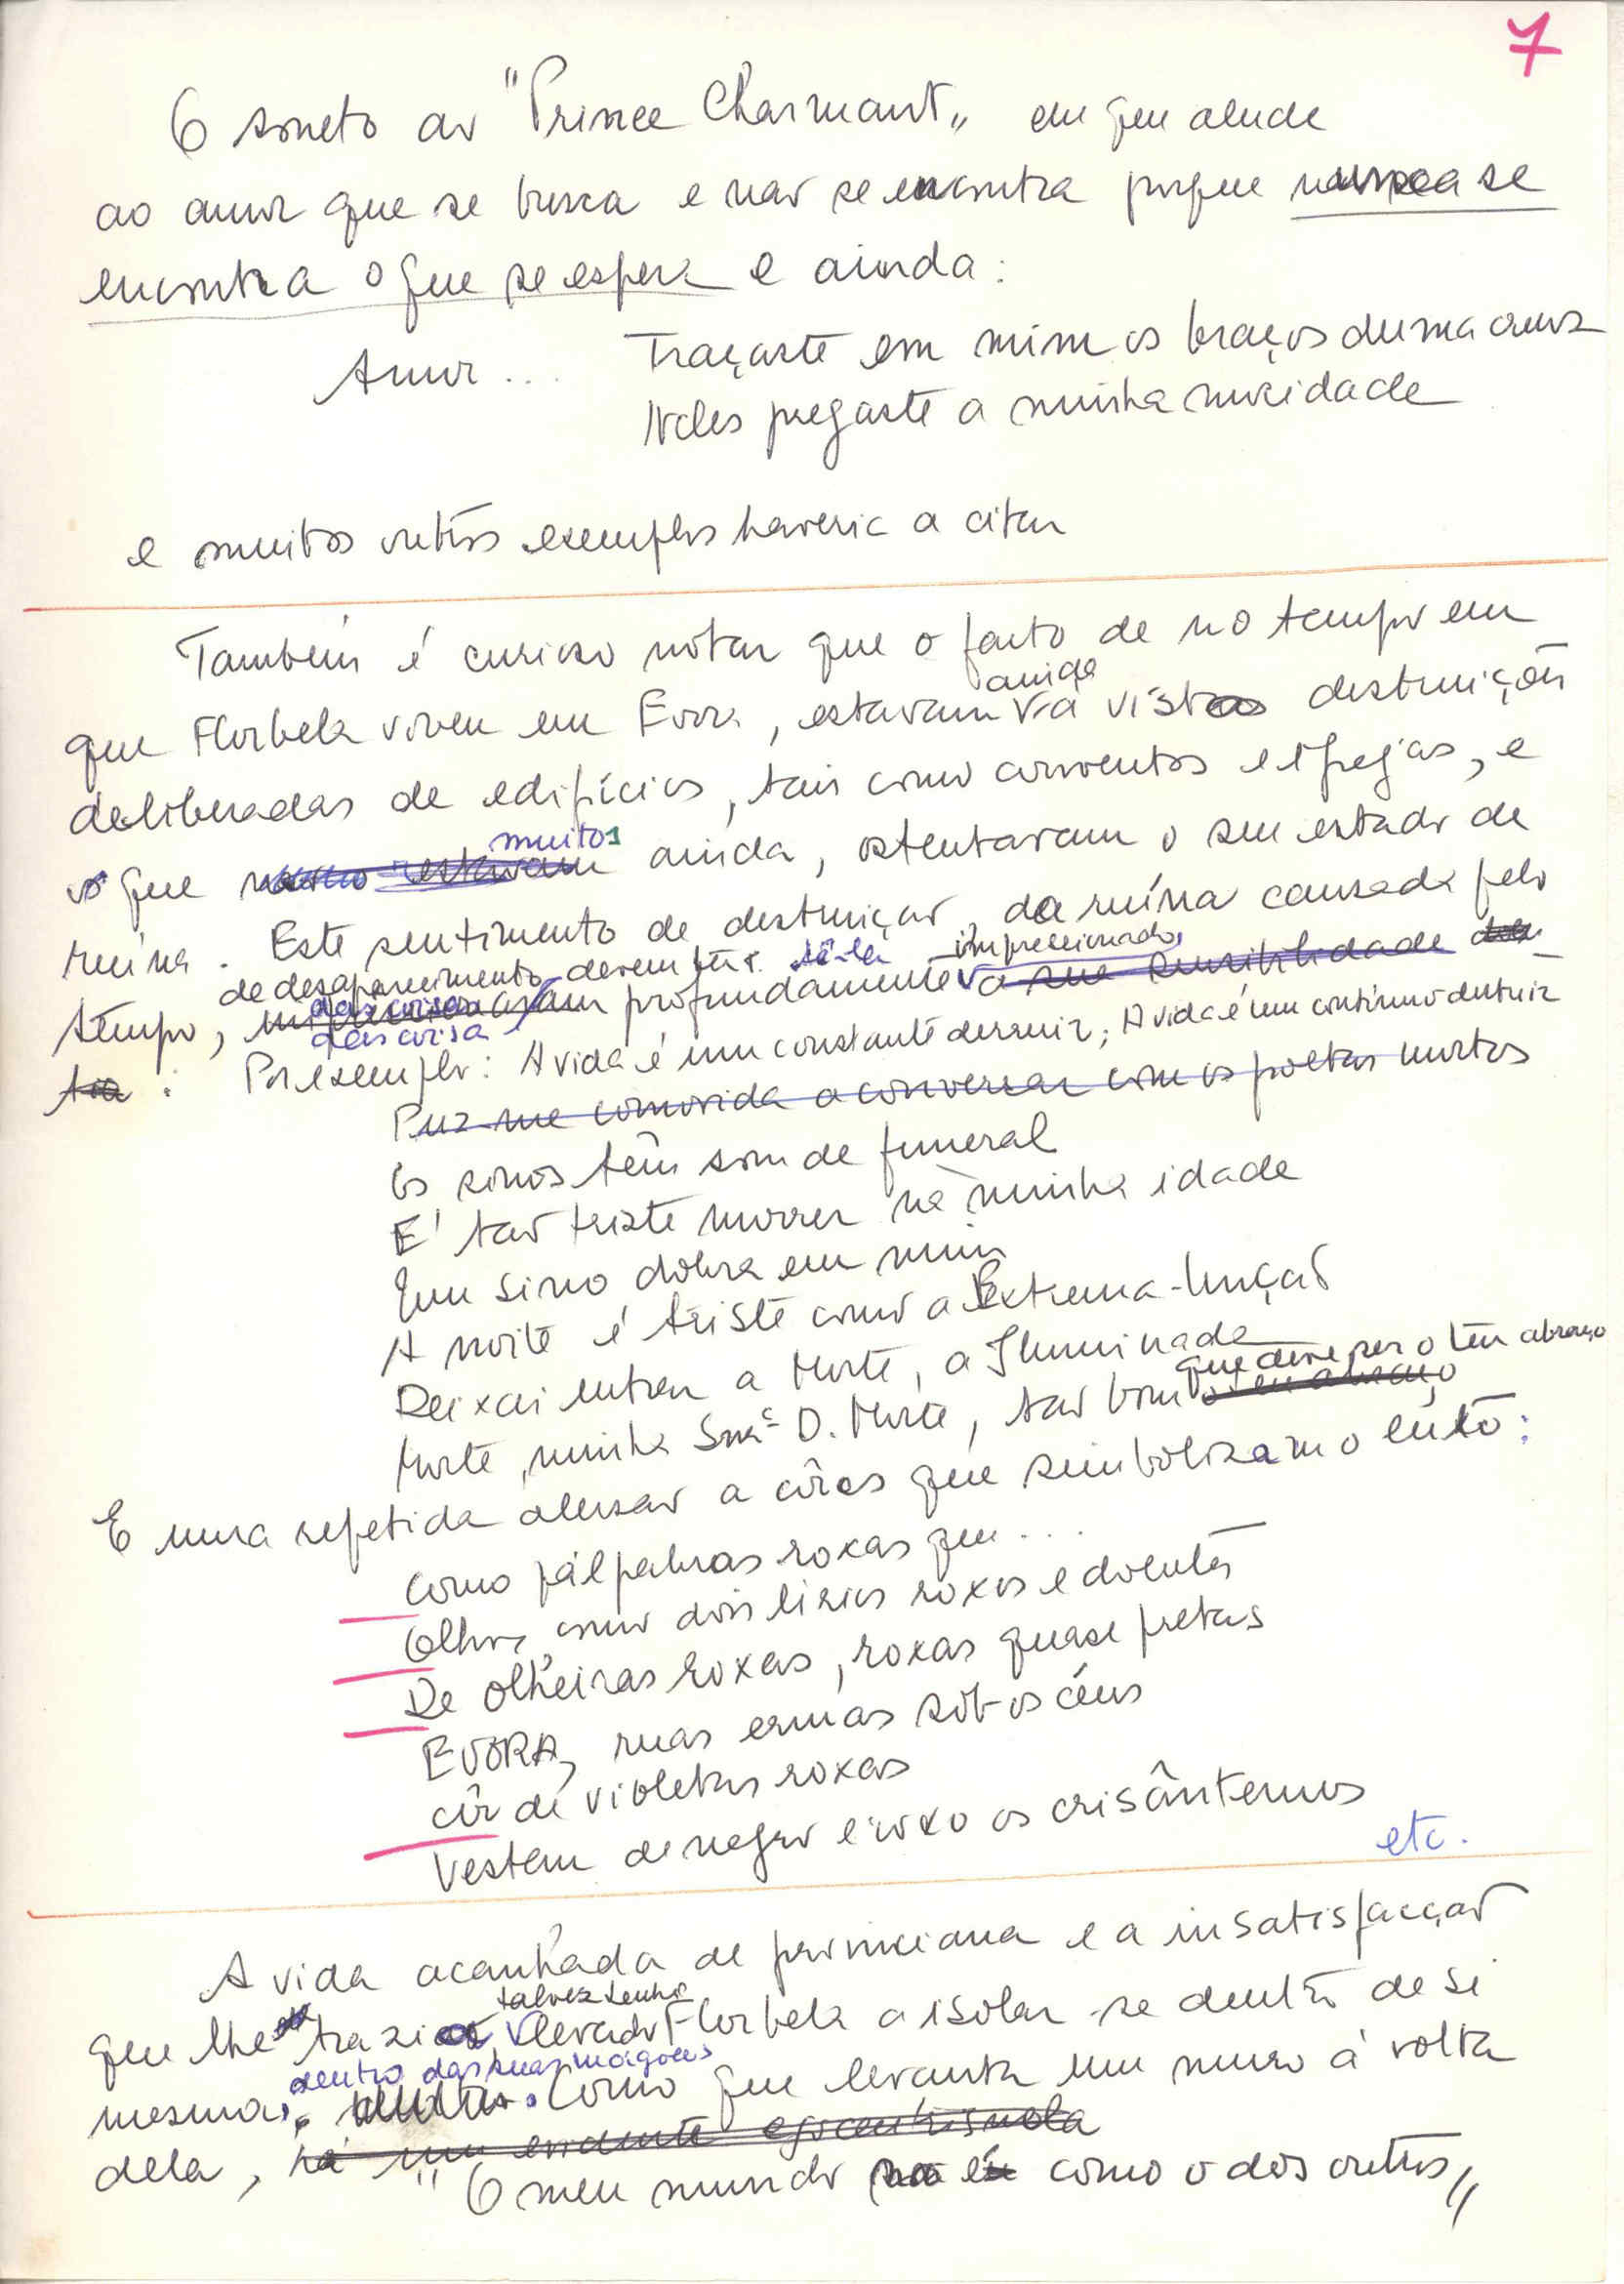 7
O soneto ao "Prince Charmant" em que alude
ao amor que se busca e não se encontra porque nunca se
encontra o que se espera e ainda:
Amor... Traçaste em mim os braços duma cruz
Neles pregaste a minha mocidade
e muitos outros exemplos haveria a citar
Também é curioso notar que o facto de no tempo em
ainda
que Florbela viveu em Evora, estavam à vista destruições
deliberadas de edifícios, tais como conventos e igrejas, e
muitos
os que ainda, ostentavam o seu estado de
ruína. Este sentimento de destruição, da ruína causada pelo
de desaparecimento devem ter tê-la impressionado,
das coisas
tempo, impressionavam profundamente a sua sensibilidade
das coisas
Por exemplo: A vida é um constante derruir; A vida é um contínuo destruir
Puz-me comovida a conversar com os poetas mortos
Os sinos têm som de funeral
E' tão triste morrer na minha idade
Que sino dobra em mim
A noite é triste como a Extrema-Unção
Deixai entrar a Morte, a Iluminada
que deve ser o teu abraço
Morte, minha Snrª D. Morte, tão bom o teu abraço
E uma repetida alusão a côres que simbolizam o luto:
Como pálpebras roxas que...
Olhos, como dois lirios roxos e doentes
De olheiras roxas, roxas quase pretas
EVORA, ruas ermas sob os céus
côr de violetas roxas
Vestem de negro e roxo os crisântemos
etc.
A vida acanhada de provinciana e a insatisfacção
talvez tenha
que lhe trazia levado Florbela a isolar-se dentro de si
dentro das suas mágoas
mesma. Como que levanta um muro à volta
dela, há um evidente egocentrismo
"O meu mundo não é como o dos outros"